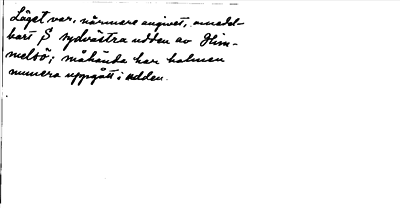 Läget var, närmare angivet, omedel-
bart S sydvästra udden av Him-
melsö; måhända har holmen
numera uppgått i udden.